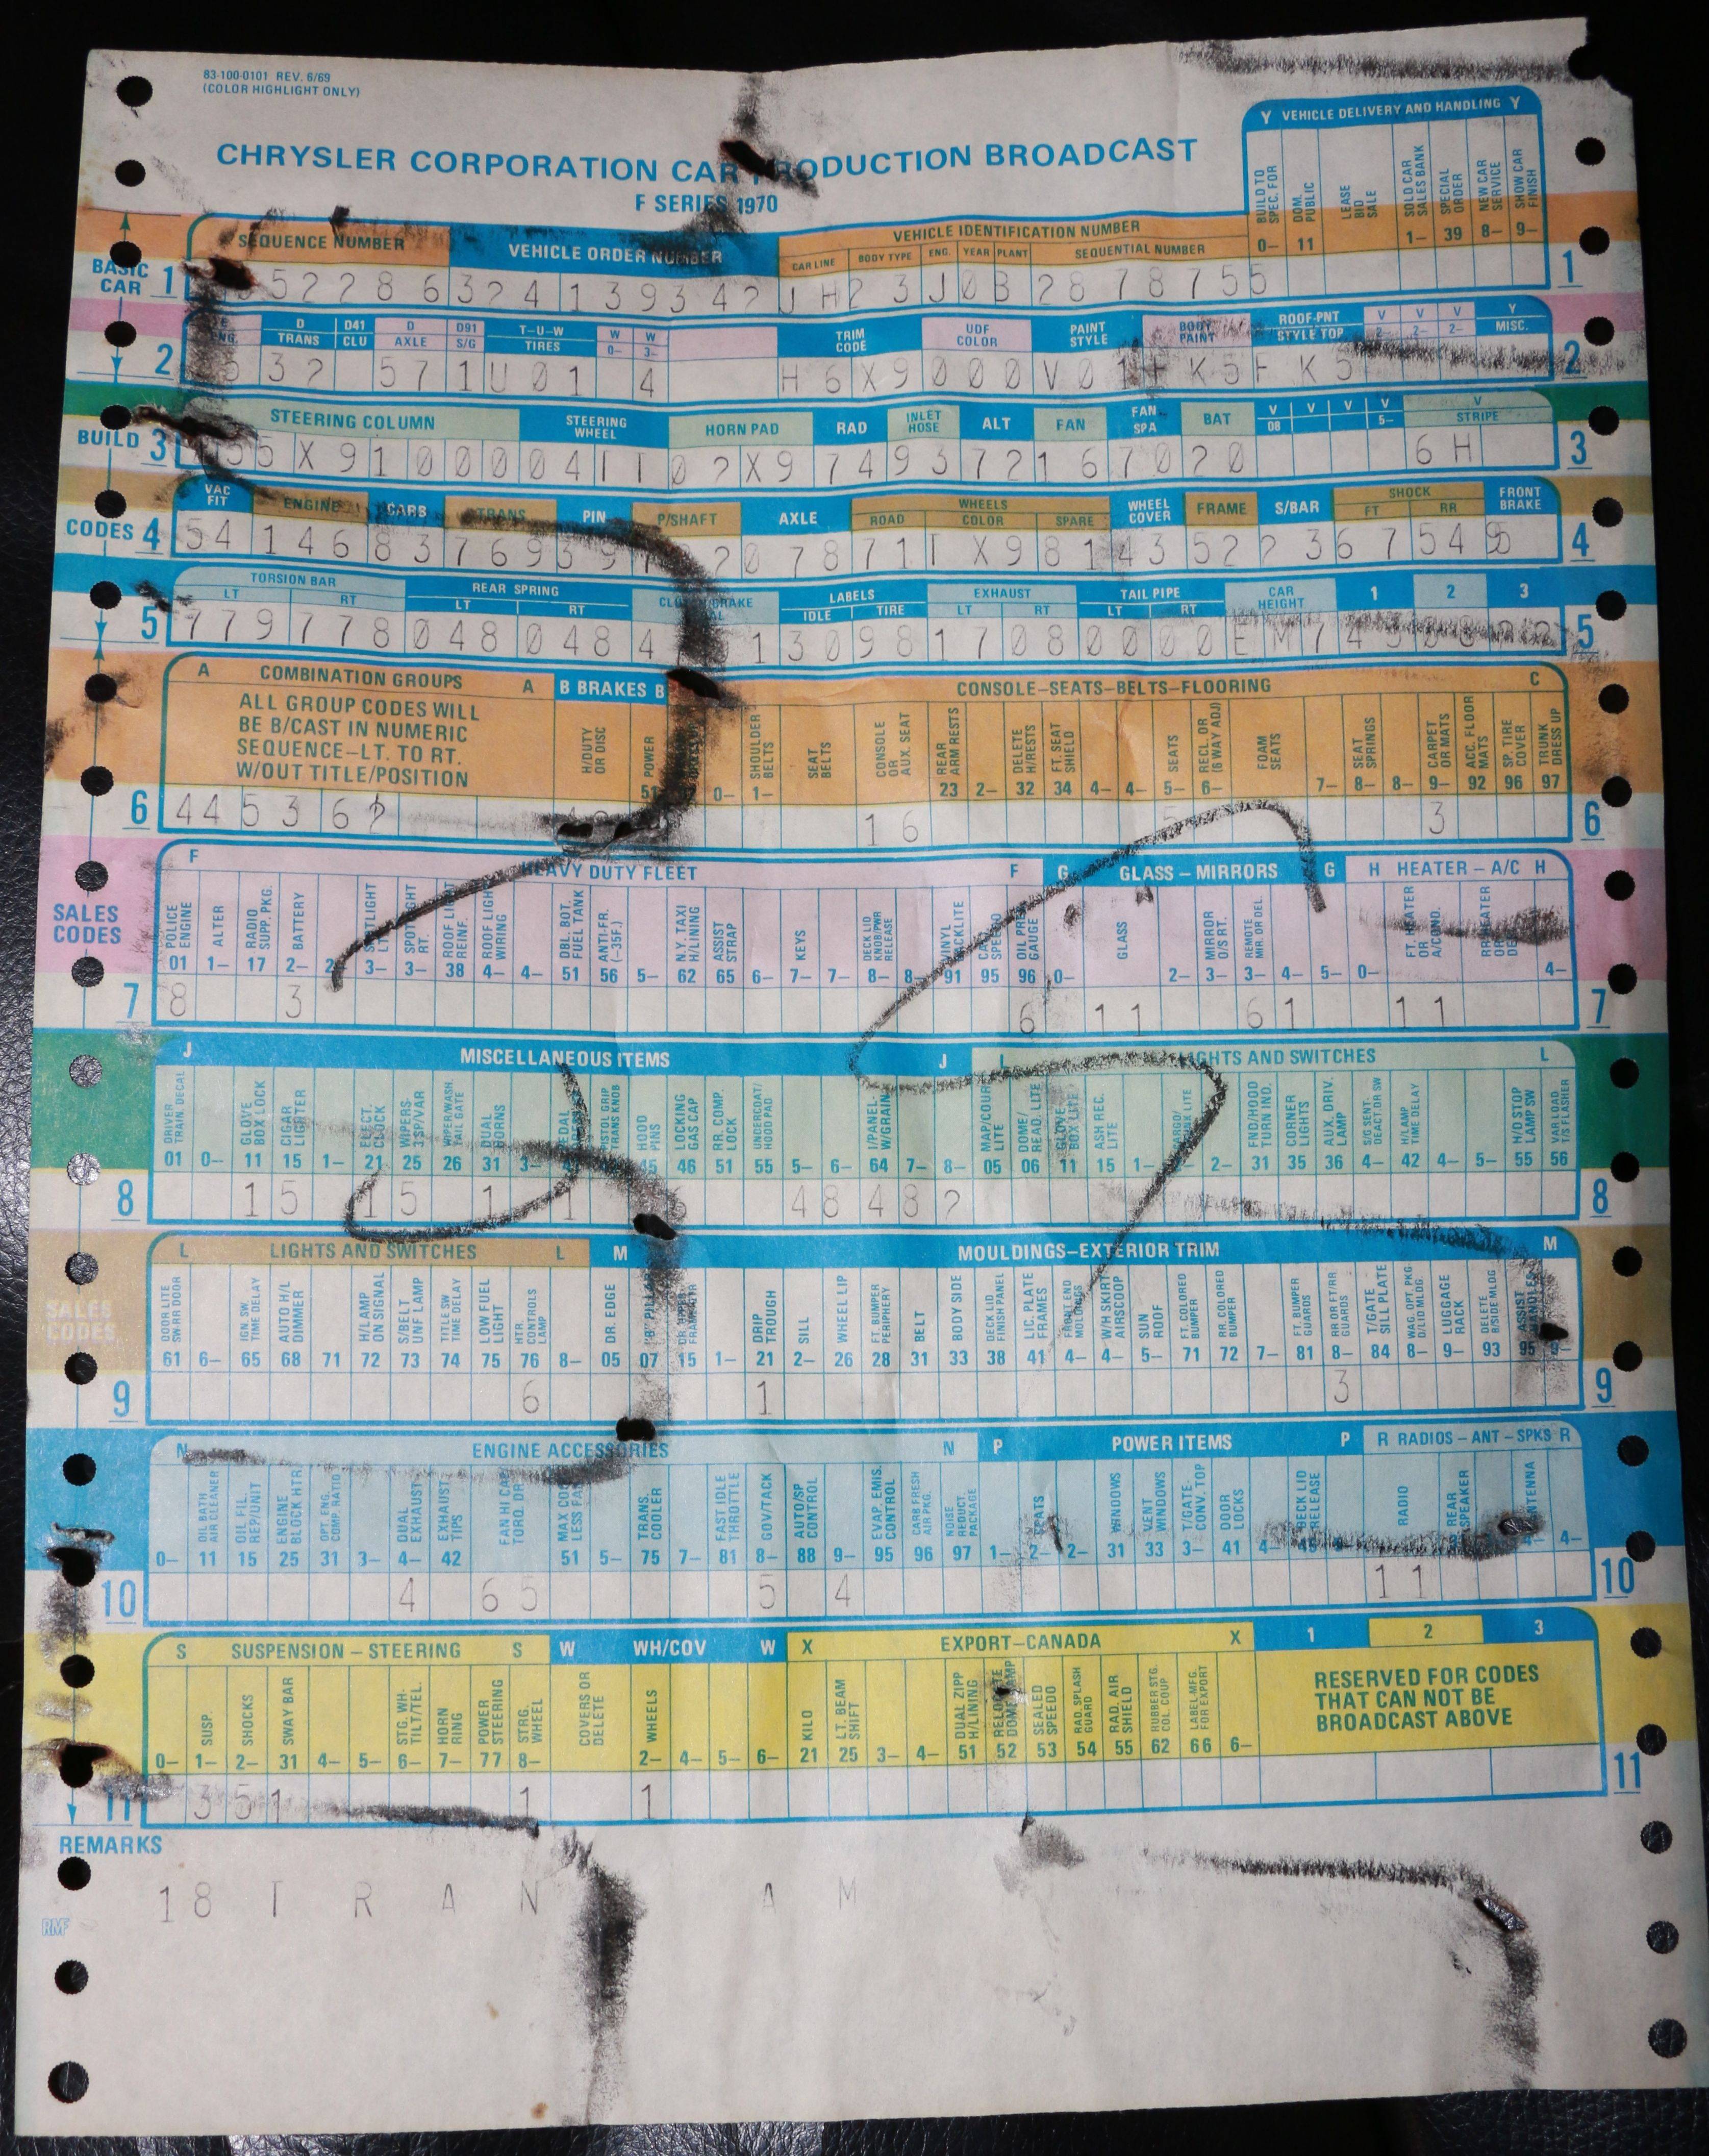 83-100-0101 REV. 6/69
(COLOR HIGHLIGHT ONLY)
CHRYSLER CORPORATION CAR PRODUCTION BROADCAST
F SERIES 1970
Y VEHICLE DELIVERY AND HANDLING Y
BUILD TO SPEC. FOR DOM. PUBLIC LEASE BID SALE SOLD CAR SALES BANK SPECIAL ORDER NEW CAR SERVICE SHOW CAR FINISH
0- 11 1- 39 8- 9-
SEQUENCE NUMBER VEHICLE ORDER NUMBER VEHICLE IDENTIFICATION NUMBER
CAR LINE BODY TYPE ENG. YEAR PLANT SEQUENTIAL NUMBER
BASIC CAR 1 52286324139342 JH23J0B2878755 1
D TRANS D41 CLU D AXLE D91 S/G T-U-W TIRES W 0- W 3- TRIM CODE UDF COLOR PAINT STYLE BODY PAINT ROOF-PNT STYLE TOP V 2- V 2- V 2- Y MISC.
2 32 571U01 4 H6X9000V01 K5F K5 2
STEERING COLUMN STEERING WHEEL HORN PAD RAD INLET HOSE ALT FAN FAN SPA BAT V 08 V V V 5- V STRIPE
BUILD 3 55X910000411102X9749372167020 6H 3
VAC FIT ENGINE CARB TRANS PIN P/SHAFT AXLE WHEELS ROAD COLOR SPARE WHEEL COVER FRAME S/BAR SHOCK FT RR FRONT BRAKE
CODES 4 541468376939 20 78711 X98143522 36754 4
TORSION BAR LT RT REAR SPRING LT RT LABELS IDLE TIRE EXHAUST LT RT TAIL PIPE LT RT CAR HEIGHT 1 2 3
5 7797780480484 1309817080000EM74 5
A COMBINATION GROUPS A B BRAKES B CONSOLE-SEATS-BELTS-FLOORING C
ALL GROUP CODES WILL
BE B/CAST IN NUMERIC
SEQUENCE-LT. TO RT.
W/OUT TITLE/POSITION
H/DUTY OR DISC POWER SHOULDER BELTS SEAT BELTS CONSOLE OR AUX. SEAT REAR ARM RESTS DELETE H/RESTS FT. SEAT SHIELD SEATS RECL. OR (6 WAY ADJ) FOAM SEATS SEAT SPRINGS CARPET OR MATS ACC. FLOOR MATS SP. TIRE COVER TRUNK DRESS UP
51 0- 1- 23 2- 32 34 4- 4- 5- 6- 7- 8- 8- 9- 92 96 97
6 445362 16 3 6
F HEAVY DUTY FLEET F G GLASS - MIRRORS G H HEATER - A/C H
POLICE ENGINE ALTER RADIO SUPP. PKG. BATTERY SPOTLIGHT LT. SPOTLIGHT RT. ROOF LIGHT REINF. ROOF LIGHT WIRING DBL. BOT. FUEL TANK ANTI-FR. (-35F.) N.Y. TAXI H/LINING ASSIST STRAP KEYS DECK LID KNOB/PWR RELEASE VINYL BACKLITE OIL PRES. GAUGE GLASS MIRROR O/S RT. REMOTE MIR. OR DEL. FT. HEATER OR A/COND.
SALES CODES
01 1- 17 2- 3- 3- 38 4- 4- 51 56 5- 62 65 6- 7- 7- 8- 8- 91 95 96 0- 2- 3- 3- 4- 5- 0- 4-
7 8 3 6 11 61 11 7
J MISCELLANEOUS ITEMS J L LIGHTS AND SWITCHES L
DRIVER TRAIN. DECAL GLOVE BOX LOCK CIGAR LIGHTER ELECT. CLOCK WIPERS 3SP/VAR WIPER/WASH. TAIL GATE DUAL HORNS PISTOL GRIP TRANS KNOB HOOD PINS LOCKING GAS CAP RR. COMP. LOCK UNDERCOAT/ HOOD PAD I/PANEL- W/GRAIN MAP/COUR LITE DOME/ READ. LITE GLOVE BOX LITE ASH REC. LITE FND/HOOD TURN IND. CORNER LIGHTS AUX. DRIV. LAMP S/C SENT. DEACT OR SW H/LAMP TIME DELAY H/D STOP LAMP SW VAR. LOAD T/S FLASHER
01 0- 11 15 1- 21 25 26 31 3- 45 46 51 55 5- 6- 64 7- 8- 05 06 11 15 1- 2- 31 35 36 4- 42 4- 5- 55 56
8 15 15 1 1 6 48482 8
L LIGHTS AND SWITCHES L M MOULDINGS-EXTERIOR TRIM M
SALES CODES
DOOR LITE SW RR DOOR IGN. SW. TIME DELAY AUTO H/L DIMMER H/LAMP ON SIGNAL S/BELT UNF LAMP TITLE SW TIME DELAY LOW FUEL LIGHT HTR. CONTROLS LAMP DR. EDGE "B" PILLAR DRIP TROUGH SILL WHEEL LIP FT. BUMPER PERIPHERY BELT BODY SIDE DECK LID FINISH PANEL LIC. PLATE FRAMES FRONT END MOLDINGS W/H SKIRT AIRSCOOP SUN ROOF FT. COLORED BUMPER RR. COLORED BUMPER FT. BUMPER GUARDS RR OR FT/RR GUARDS T/GATE SILL PLATE WAG. OPT. PKG. D/LID MLDG. LUGGAGE RACK DELETE B/SIDE MLDG. ASSIST HANDLES
61 6- 65 68 71 72 73 74 75 76 8- 05 07 15 1- 21 2- 26 28 31 33 38 41 4- 4- 5- 71 72 7- 81 8- 84 8- 9- 93 95
9 6 1 3 9
N ENGINE ACCESSORIES N P POWER ITEMS P R RADIOS - ANT - SPKS R
OIL BATH AIR CLEANER OIL FIL. REP/UNIT ENGINE BLOCK HTR OPT. ENG. COMP. RATIO DUAL EXHAUST EXHAUST TIPS FAN HI CAP TORQ. DR. MAX COOL LESS FAN TRANS. COOLER FAST IDLE THROTTLE GOV/TACK AUTO/SP CONTROL EVAP. EMIS. CONTROL CARB FRESH AIR PKG. NOISE REDUCT. PACKAGE SEATS WINDOWS VENT WINDOWS T/GATE- CONV. TOP DOOR LOCKS DECK LID RELEASE RADIO REAR SPEAKER ANTENNA
0- 11 15 25 31 3- 4- 42 51 5- 75 7- 81 8- 88 9- 95 96 97 1- 2- 2- 31 33 3- 41 4- 4-
10 4 65 5 4 11 10
S SUSPENSION - STEERING S W WH/COV W X EXPORT-CANADA X 1 2 3
SUSP. SHOCKS SWAY BAR STG. WH- TILT/TEL. HORN RING POWER STEERING STRG. WHEEL COVERS OR DELETE WHEELS KILO LT. BEAM SHIFT DUAL ZIPP H/LINING RELOCATE DOME LAMP SEALED SPEEDO RAD. SPLASH GUARD RAD. AIR SHIELD RUBBER STG. COL. COUP LABEL MFG. FOR EXPORT
RESERVED FOR CODES
THAT CAN NOT BE
BROADCAST ABOVE
0- 1- 2- 31 4- 5- 6- 7- 77 8- 2- 4- 5- 6- 21 25 3- 4- 51 52 53 54 55 62 66 6-
11 351 1 1 11
REMARKS
18 T R A N A M
RMF